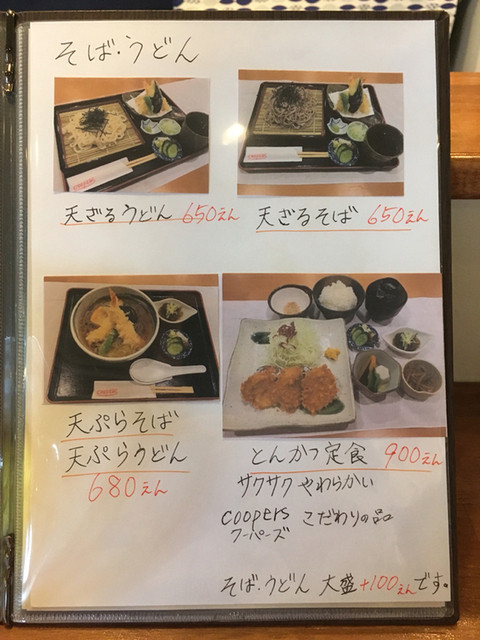 そば・うどん
天ざるうどん 650えん
天ざるそば 650えん
天ぷらそば
天ぷらうどん
680えん
とんかつ定食 900えん
サクサク やわらかい
coopers こだわりの品
クーパーズ
そば・うどん 大盛 +100えんです。